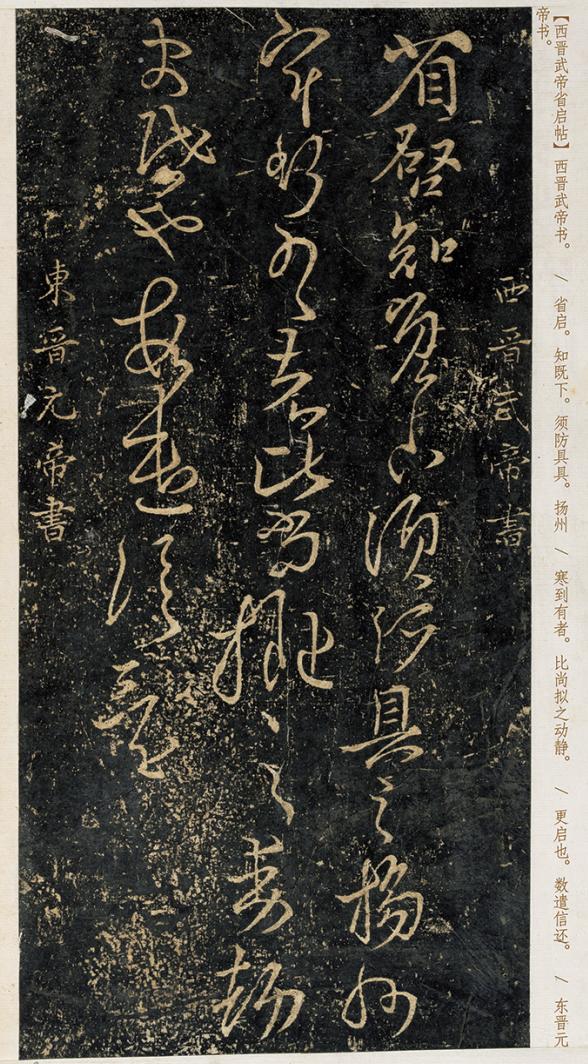 【西晋武帝省启帖】 西晋武帝书。 / 省启。知既下。须防具具。扬州 / 寒到有者。比尚拟之动静。 / 更启也。数遣信还。 / 东晋元
帝书。
西晉武帝書
省啓知須防具揚州
到有比尚擬之動静
更啓也數遣信還
東晉元帝書